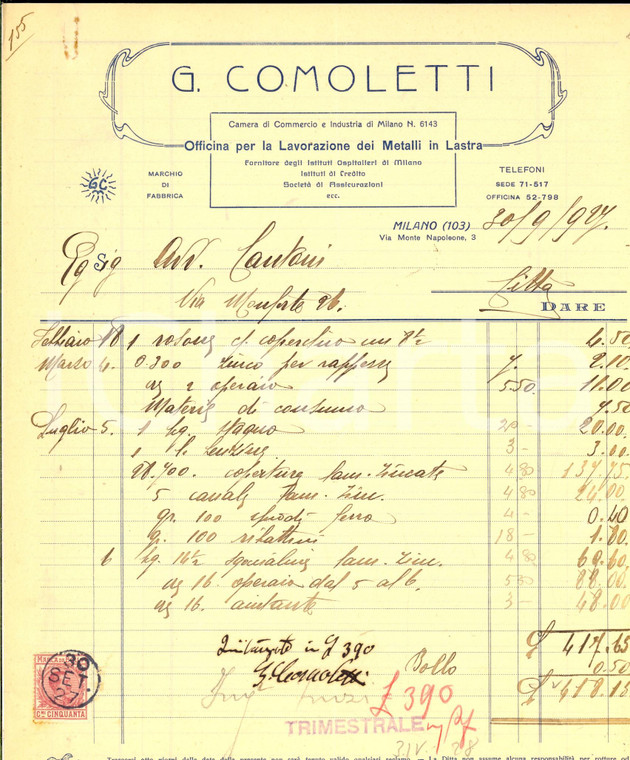 155
G. COMOLETTI
Camera di Commercio e Industria di Milano N. 6143
Officina per la Lavorazione dei Metalli in Lastra
Fornitore degli Istituti Ospitalieri di Milano
Istituti di Credito
Società di Assicurazioni
ecc.
GC
MARCHIO
DI
FABBRICA
TELEFONI
SEDE 71-517
OFFICINA 52-798
MILANO (103)
Via Monte Napoleone, 3
30/9/927.
Eg Sig Avv. Cantoni
Via Monforte 26.
Città
DARE
Febbraio 18 1 c/ coperchio cm 8½ 4.50
Marzo 4. 0.300 zinco per 7. 2.10
2 operaio 5.50 11.00
Materie di consumo 4.50
Luglio 5. 1 Kg. stagno 20- 20.00
1 l. benzina 3- 3.00
28.700. copertura lam. zincata 4.80 137.75
5 canali lam. zin. 4.80 24.00
gr. 100 ferro 4- 0.40
gr. 100 ribattini 18- 1.80
6 Kg. 14½ lam. zin. 4.80 69.60
16. operaio dal 5 al 6. 5.50 88.00
16. aiutante 3- 48.00
£ 417.65
Bollo 0.50
£ 418.15
Quitanzato in £ 390
G. Comoletti
£ 390
TRIMESTRALE
30
SET.
27
MARCA DA
Cmi CINQUANTA